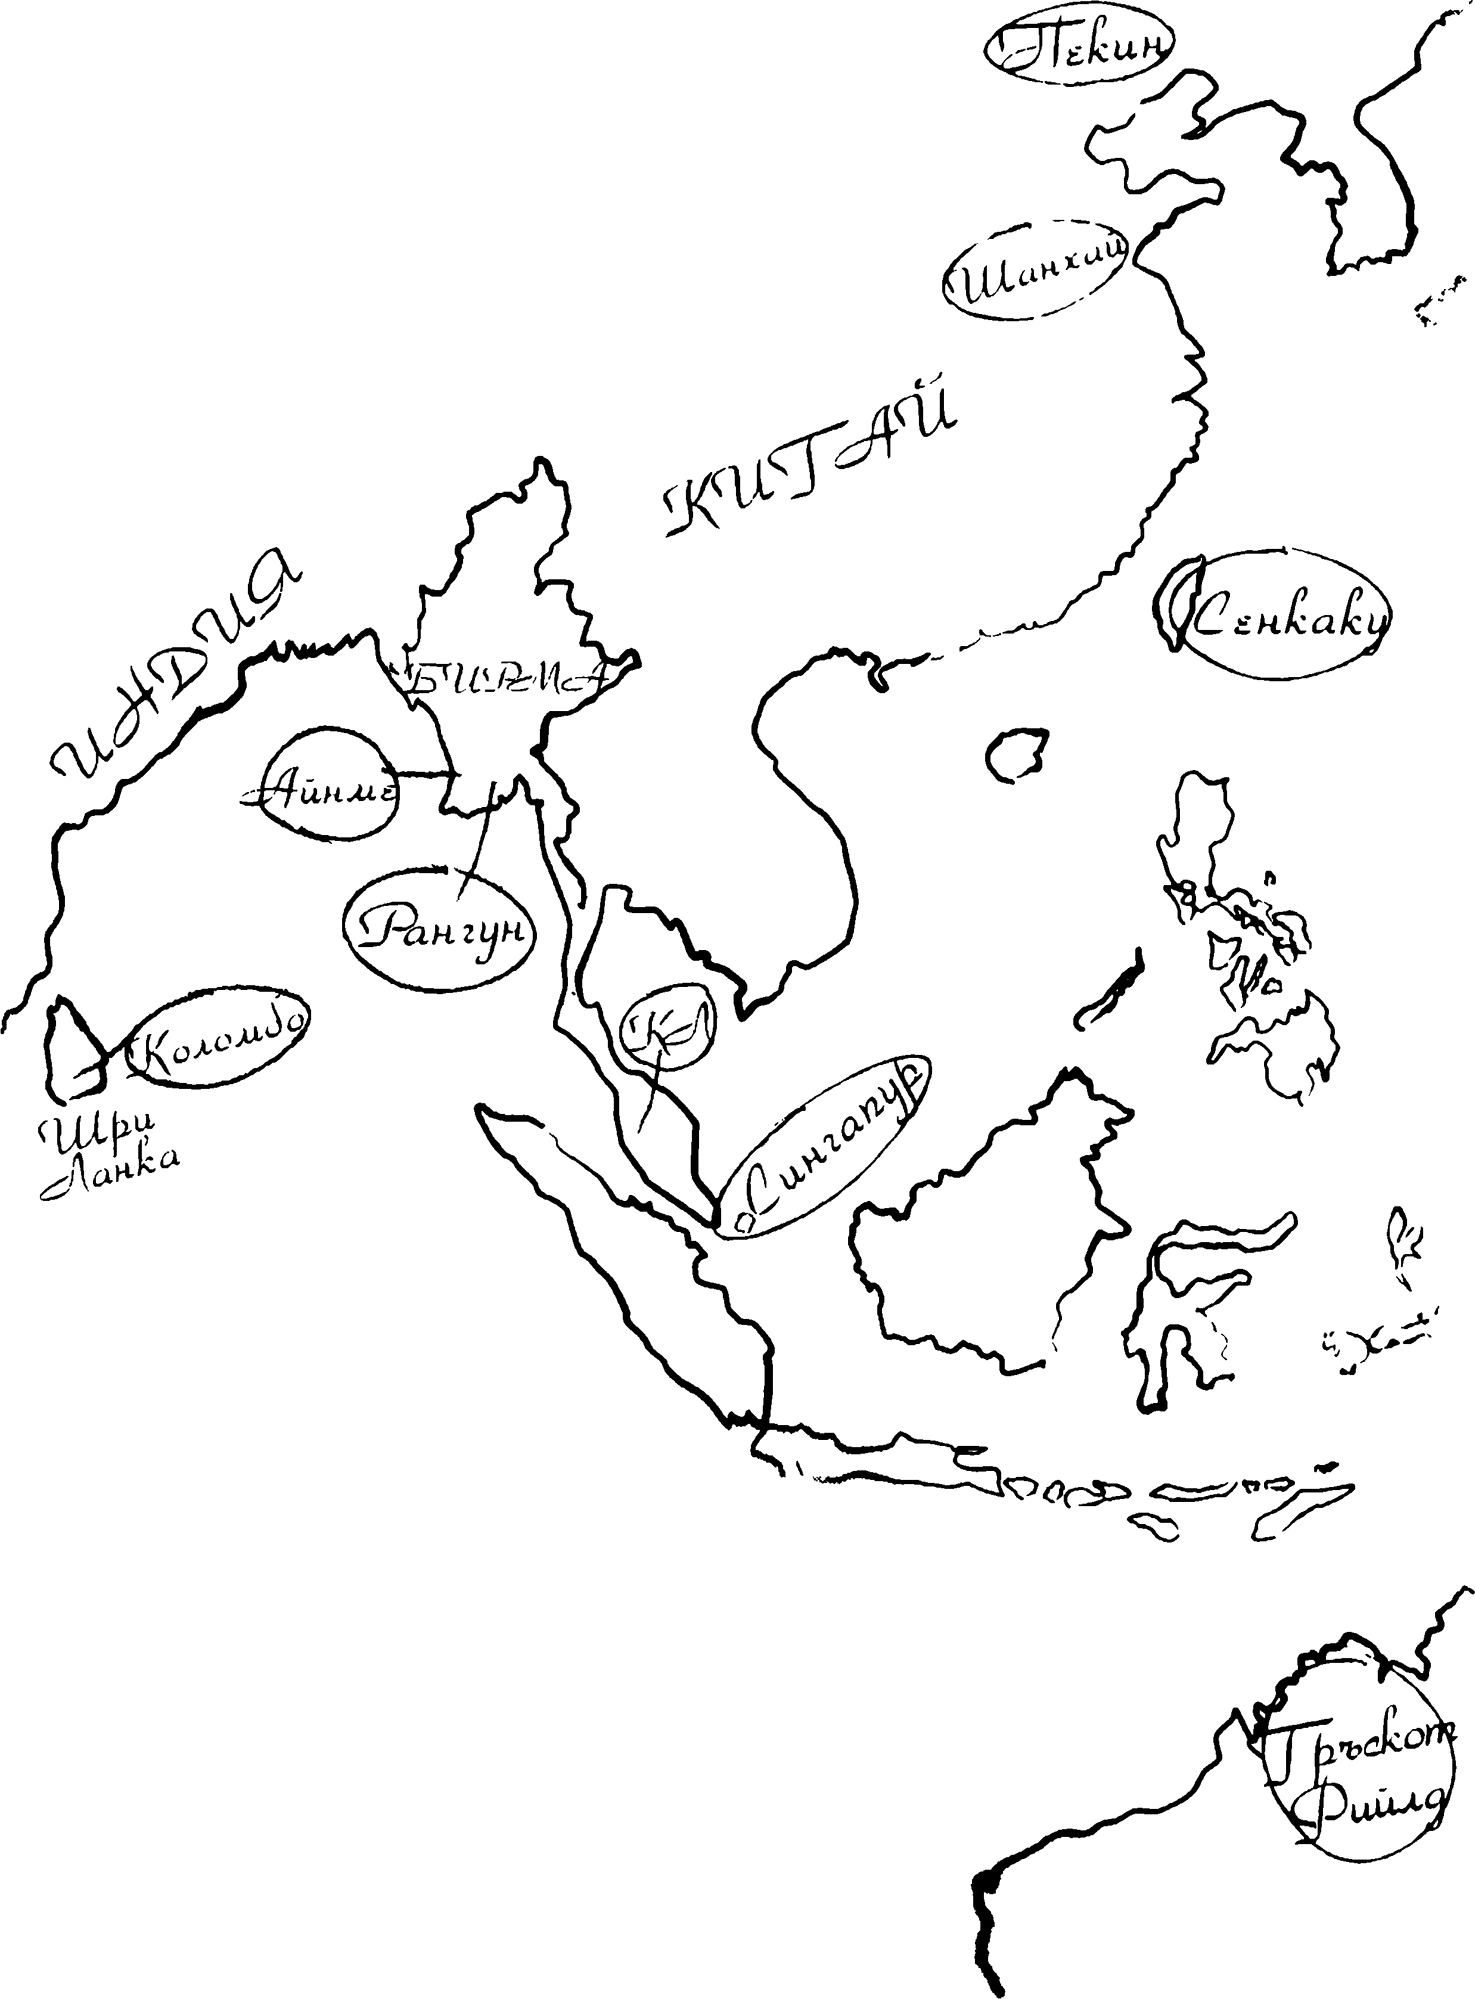 Пекин
Шанхий
КИТАЙ
ИНДИЯ
Сенкаку
БИРМА
Айнме
Рангун
КЛ
Коломбо
Шри
Ланка
Сингапур
Тръскот
Фийлд